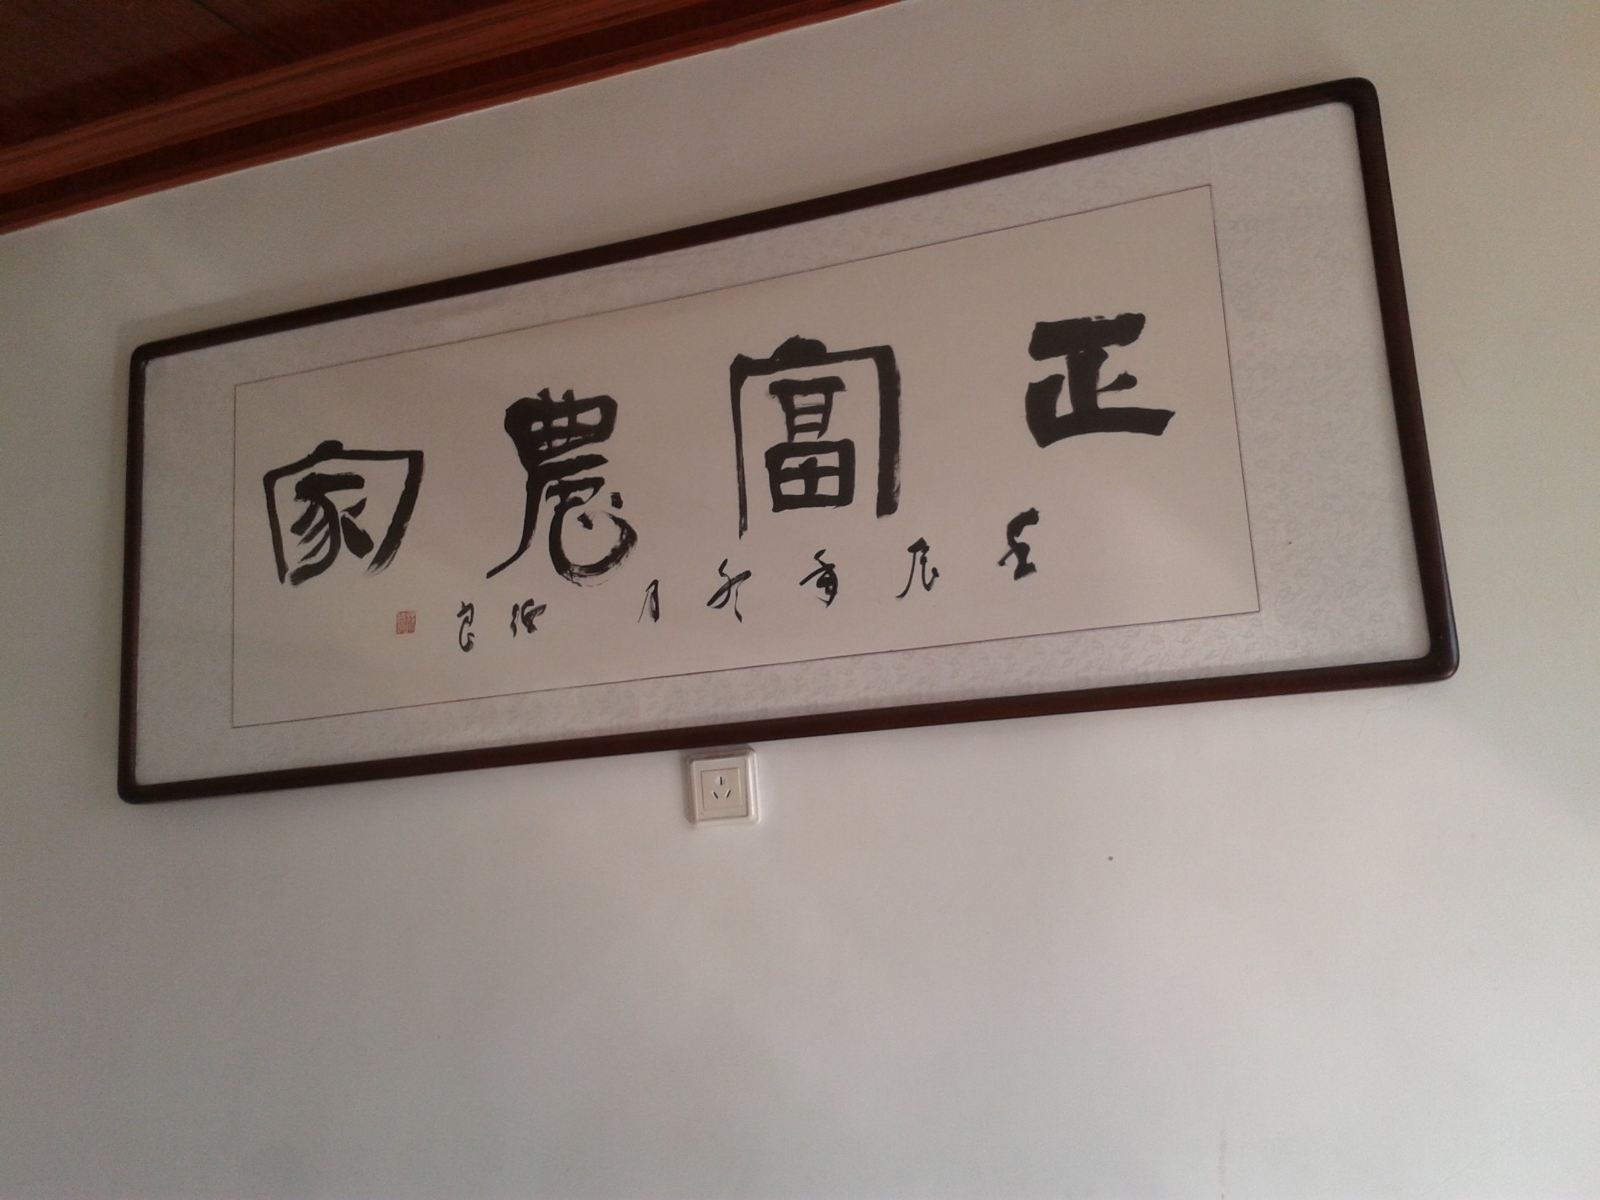 正富農家
壬辰年冬月 良